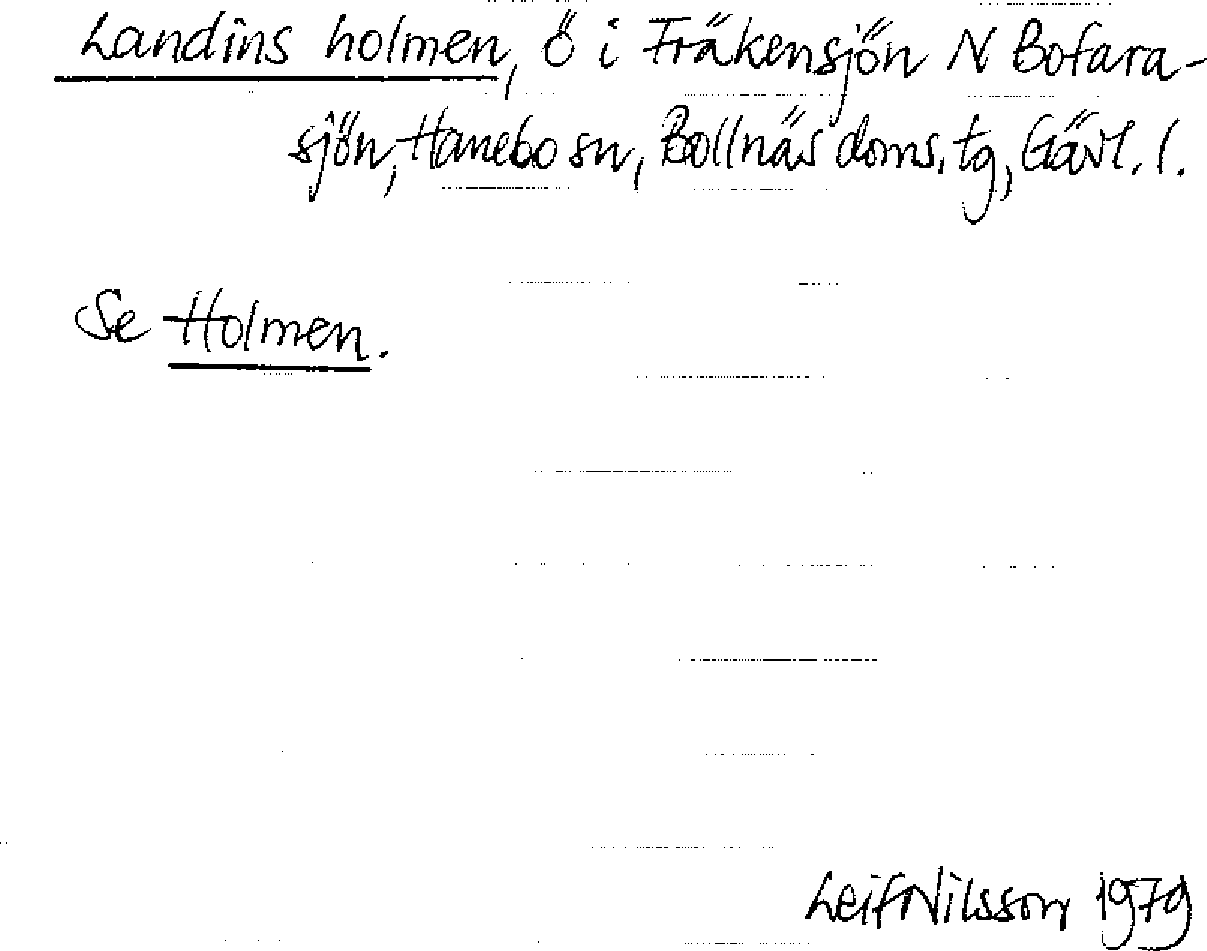 Landins holmen, ö i Fräkensjön N Bofara-
sjön, Hanebo sn, Bollnäs doms. tg, Gävl. l.
Se Holmen.
Leif Nilsson 1979